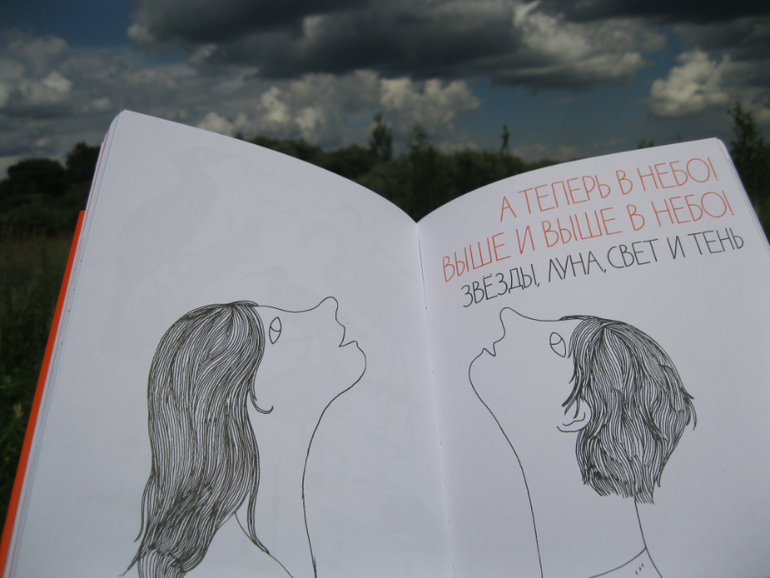 А ТЕПЕРЬ В НЕБО!
ВЫШЕ И ВЫШЕ В НЕБО!
ЗВЁЗДЫ, ЛУНА, СВЕТ И ТЕНЬ